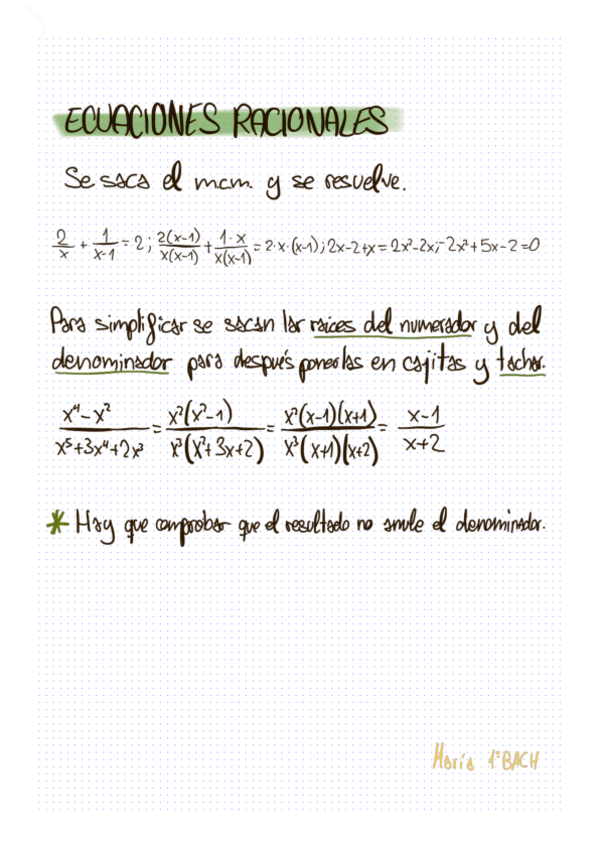 ECUACIONES RACIONALES
Se saca el mcm. y se resuelve.
2/x + 1/x-1 = 2 ; 2(x-1)/x(x-1) + 1·x/x(x-1) = 2·x·(x-1) ; 2x-2+x = 2x²-2x ; -2x²+5x-2=0
Para simplificar se sacan las raíces del numerador y del
denominador para después ponerlas en cajitas y tachar.
x⁴-x²/x⁵+3x⁴+2x³ = x²(x²-1)/x³(x²+3x+2) = x²(x-1)(x+1)/x³(x+1)(x+2) = x-1/x+2
* Hay que comprobar que el resultado no anule el denominador.
María 1ºBACH